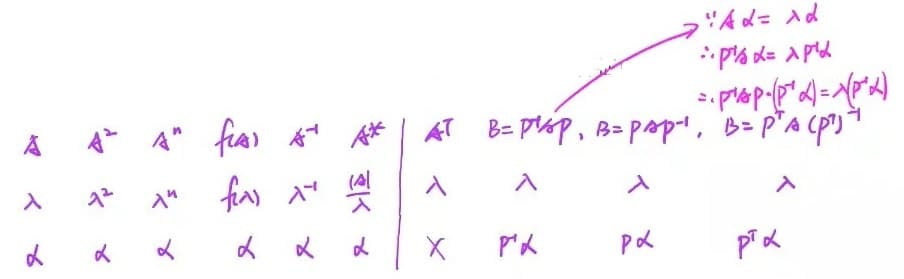 ∵ Aα = λα
∴ P⁻¹Aα = λP⁻¹α
∴ P⁻¹AP·(P⁻¹α) = λ(P⁻¹α)
A A² Aⁿ f(A) A⁻¹ A* | Aᵀ B = P⁻¹AP, B = PAP⁻¹, B = PᵀA(Pᵀ)⁻¹
λ λ² λⁿ f(λ) λ⁻¹ |A|/λ | λ λ λ λ
α α α α α α | X P⁻¹α Pα Pᵀα